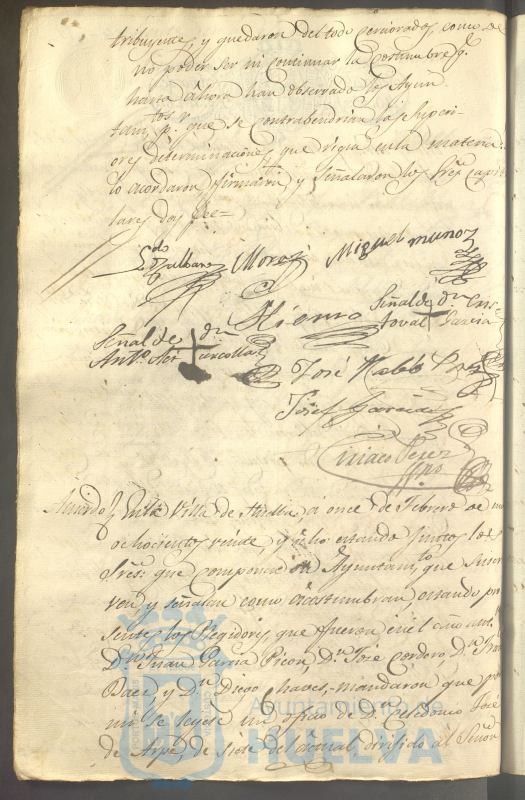 tribuyentes, y quedaron del todo cerciorados, como de
no poder ser ni continuar la costumbre q.e
hasta ahora han observado los Ayun
tam.tos p.r que se contrabendrian las superi-
ores determinaciones que rigen en la materia
lo acordaron, firmaron, y señalaron los Sres Capi
tulares doy fee=
Miguel munoz
Señal de d.n Cris
toval + Garcia
Señal de d.n
Ant.o +
José
Josef Garcia
Ciriaco Perez
Acuerdo En la Villa de Huelva, á once de Febrero de mil
ochocientos veinte, y ocho estando juntos los
Sres. que componen su Ayuntam.to que suscri
ven, y señalan como acostumbran, estando pre
sentes los Regidores que fueron en el año ant.
D.n Juan Garcia Picon, D.n José Cordero, D.n
Baez, y D.n Diego Chaves, mandaron que por
mi se leyese un oficio de D.n Celedonio José
de Arpe, de siete del actual, dirijido al Señor
Ayuntamiento de
HUELVA